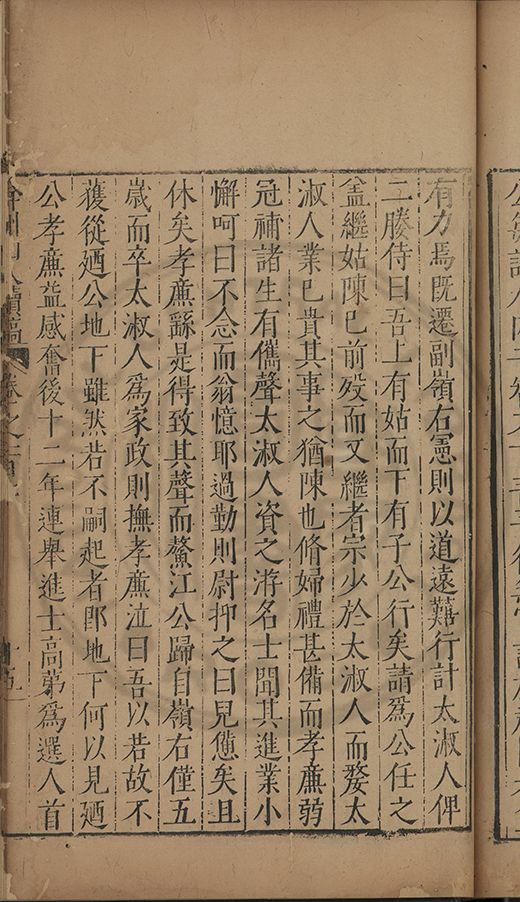 有力焉既遷副嶺右憲則以道遠難行計太淑人俾
二媵侍曰吾上有姑而下有子公行矣請爲公任之
盖繼姑陳已前歿而又繼者宗少於太淑人而婺太
淑人業已貴其事之猶陳也脩婦禮甚備而孝廉弱
冠補諸生有儁聲太淑人資之游名士聞其進業小
懈呵曰不念而翁憶耶過勤則尉抑之曰兒憊矣且
休矣孝廉繇是得致其聲而鰲江公歸自嶺右僅五
歲而卒太淑人爲家政則撫孝廉泣曰吾以若故不
獲從廼公地下雖然若不嗣起者卽地下何以見廼
公孝廉益感奮後十二年連舉進士高第爲選人首